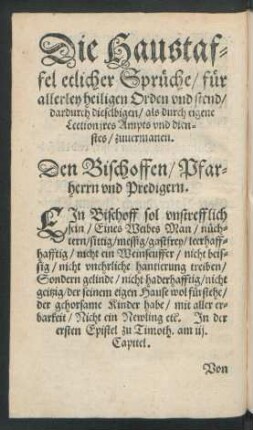 Die Haustaf-
fel etlicher Sprüche/ für
allerley heiligen Orden vnd stend/
dardurch dieselbigen/ als durch eigene
Lection jres Ampts vnd dien-
stes/ zuuermanen.
Den Bischoffen/ Pfar-
herrn vnd Predigern.
EIn Bischoff sol vnstrefflich
sein/ Eines Weibs Man/ nüch-
tern/ sittig/ messig/ gastfrey/ leerhaff-
hafftig/ nicht ein Weinseuffer/ nicht beis-
sig/ nicht vnehrliche hantierung treiben/
Sondern gelinde/ nicht haderhafftig/ nicht
geitzig/ der seinem eigen Hause wol fürstehe/
der gehorsame Kinder habe/ mit aller er-
barkeit/ Nicht ein Newling etc. In der
ersten Epistel zu Timoth. am iij.
Capitel.
Von